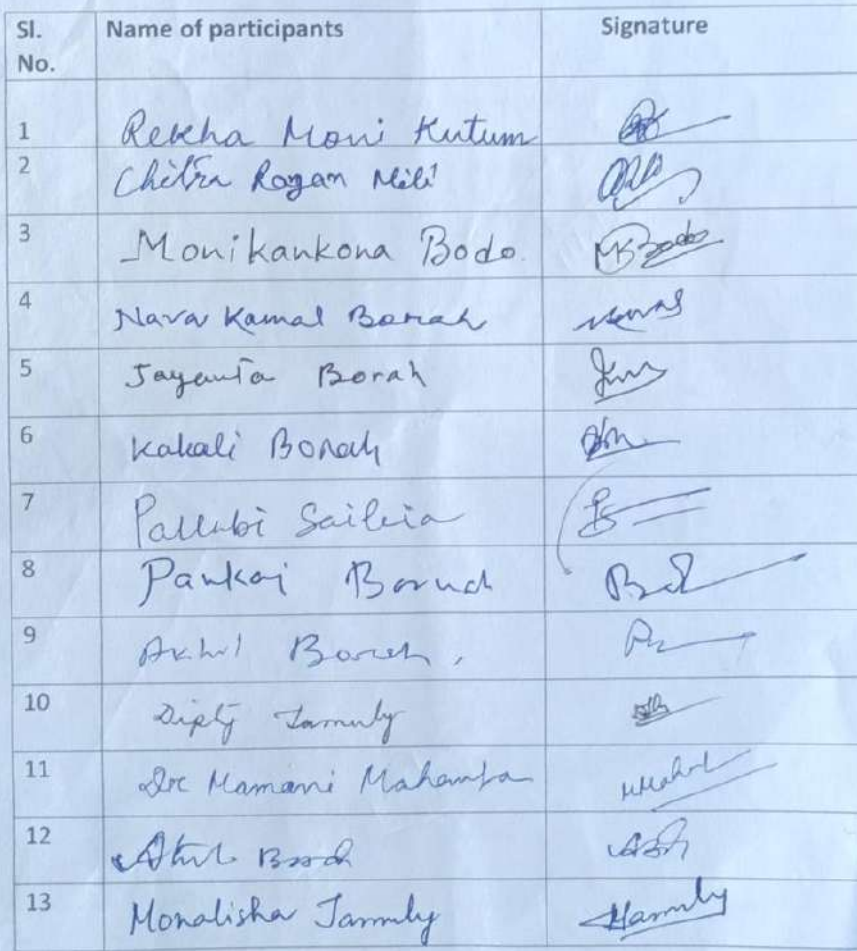 Sl. No. Name of participants Signature
1 Rekha Moni Kutum
2 Chitra Ragan Mili
3 Monikankona Bodo. MKBodo
4 Nava Kamal Borah
5 Jayanta Borah
6 Kakali Borah
7 Pallabi Saikia
8 Pankaj Baruah
9 Akhil Borah,
10 Dipty Jamuly
11 Dr Mamani Mahanta
12 Atul Borah
13 Monalisha Jamuly